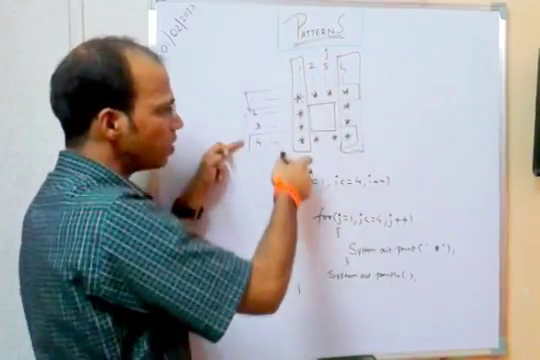 01/02/2013
PATTERNS
j
2 3 4
* * * *
* *
* *
* * * *
2
3
4
=1, i<=4, i++)
for(j=1, j<=4, j++)
{
System out print(" * "),
}
System out println( ),